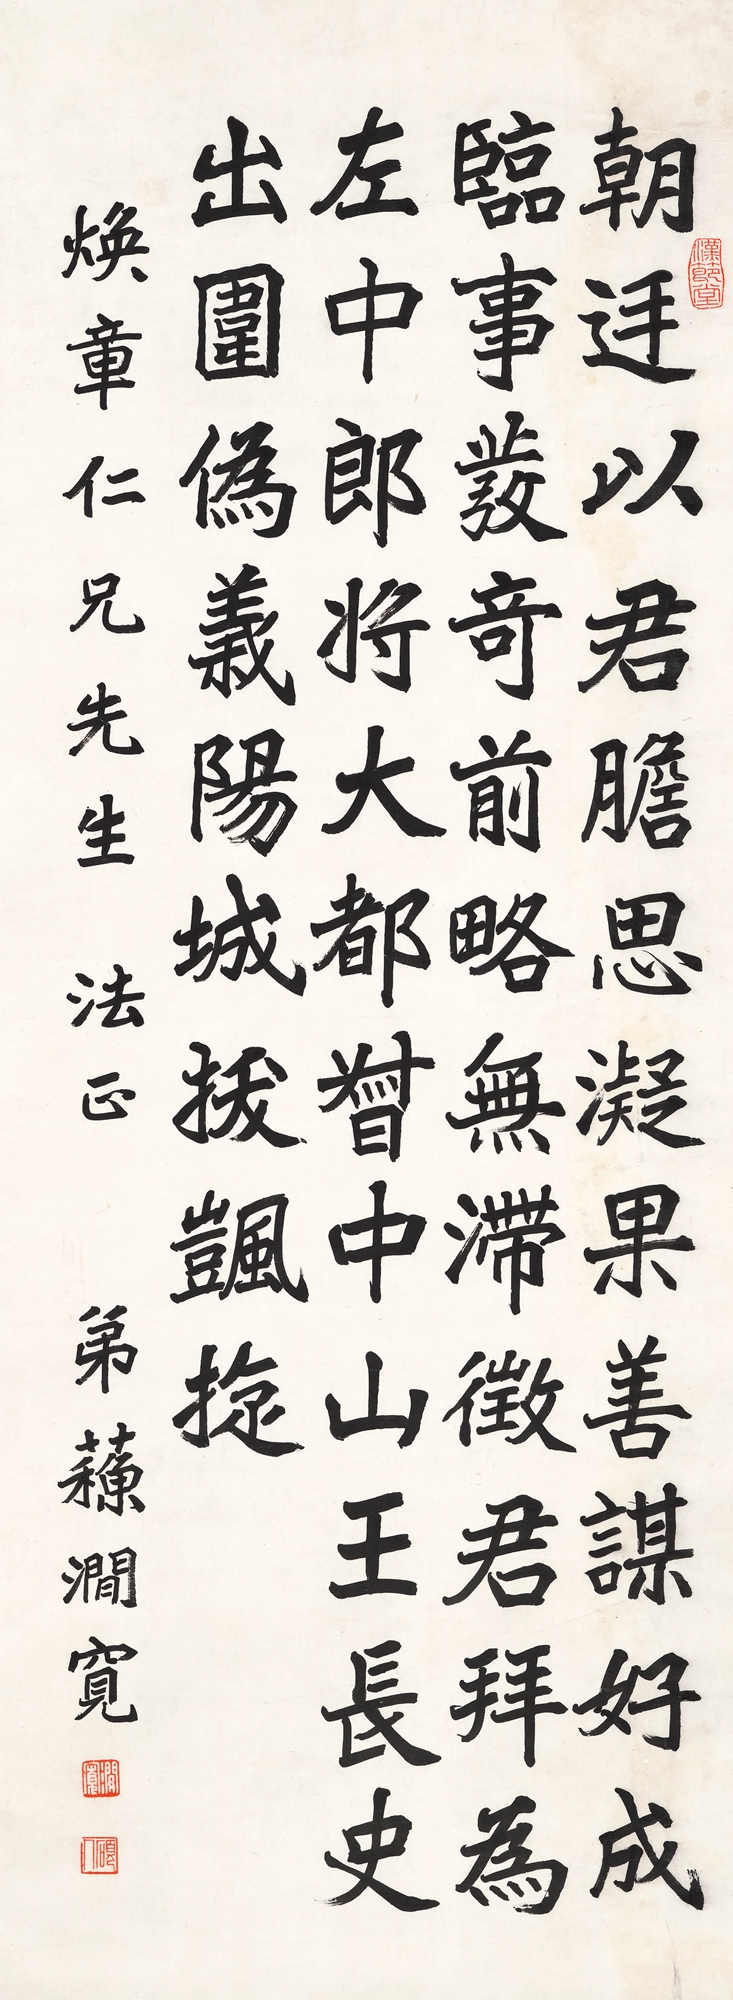 朝廷以君膽思凝果善謀好成
臨事發奇前略無滯徵君拜為
左中郎將大都督中山王長史
出圍偽義陽城拔凱旋
煥章仁兄先生 法正 弟蘇澗寬
漢節堂
澗寬
碩人